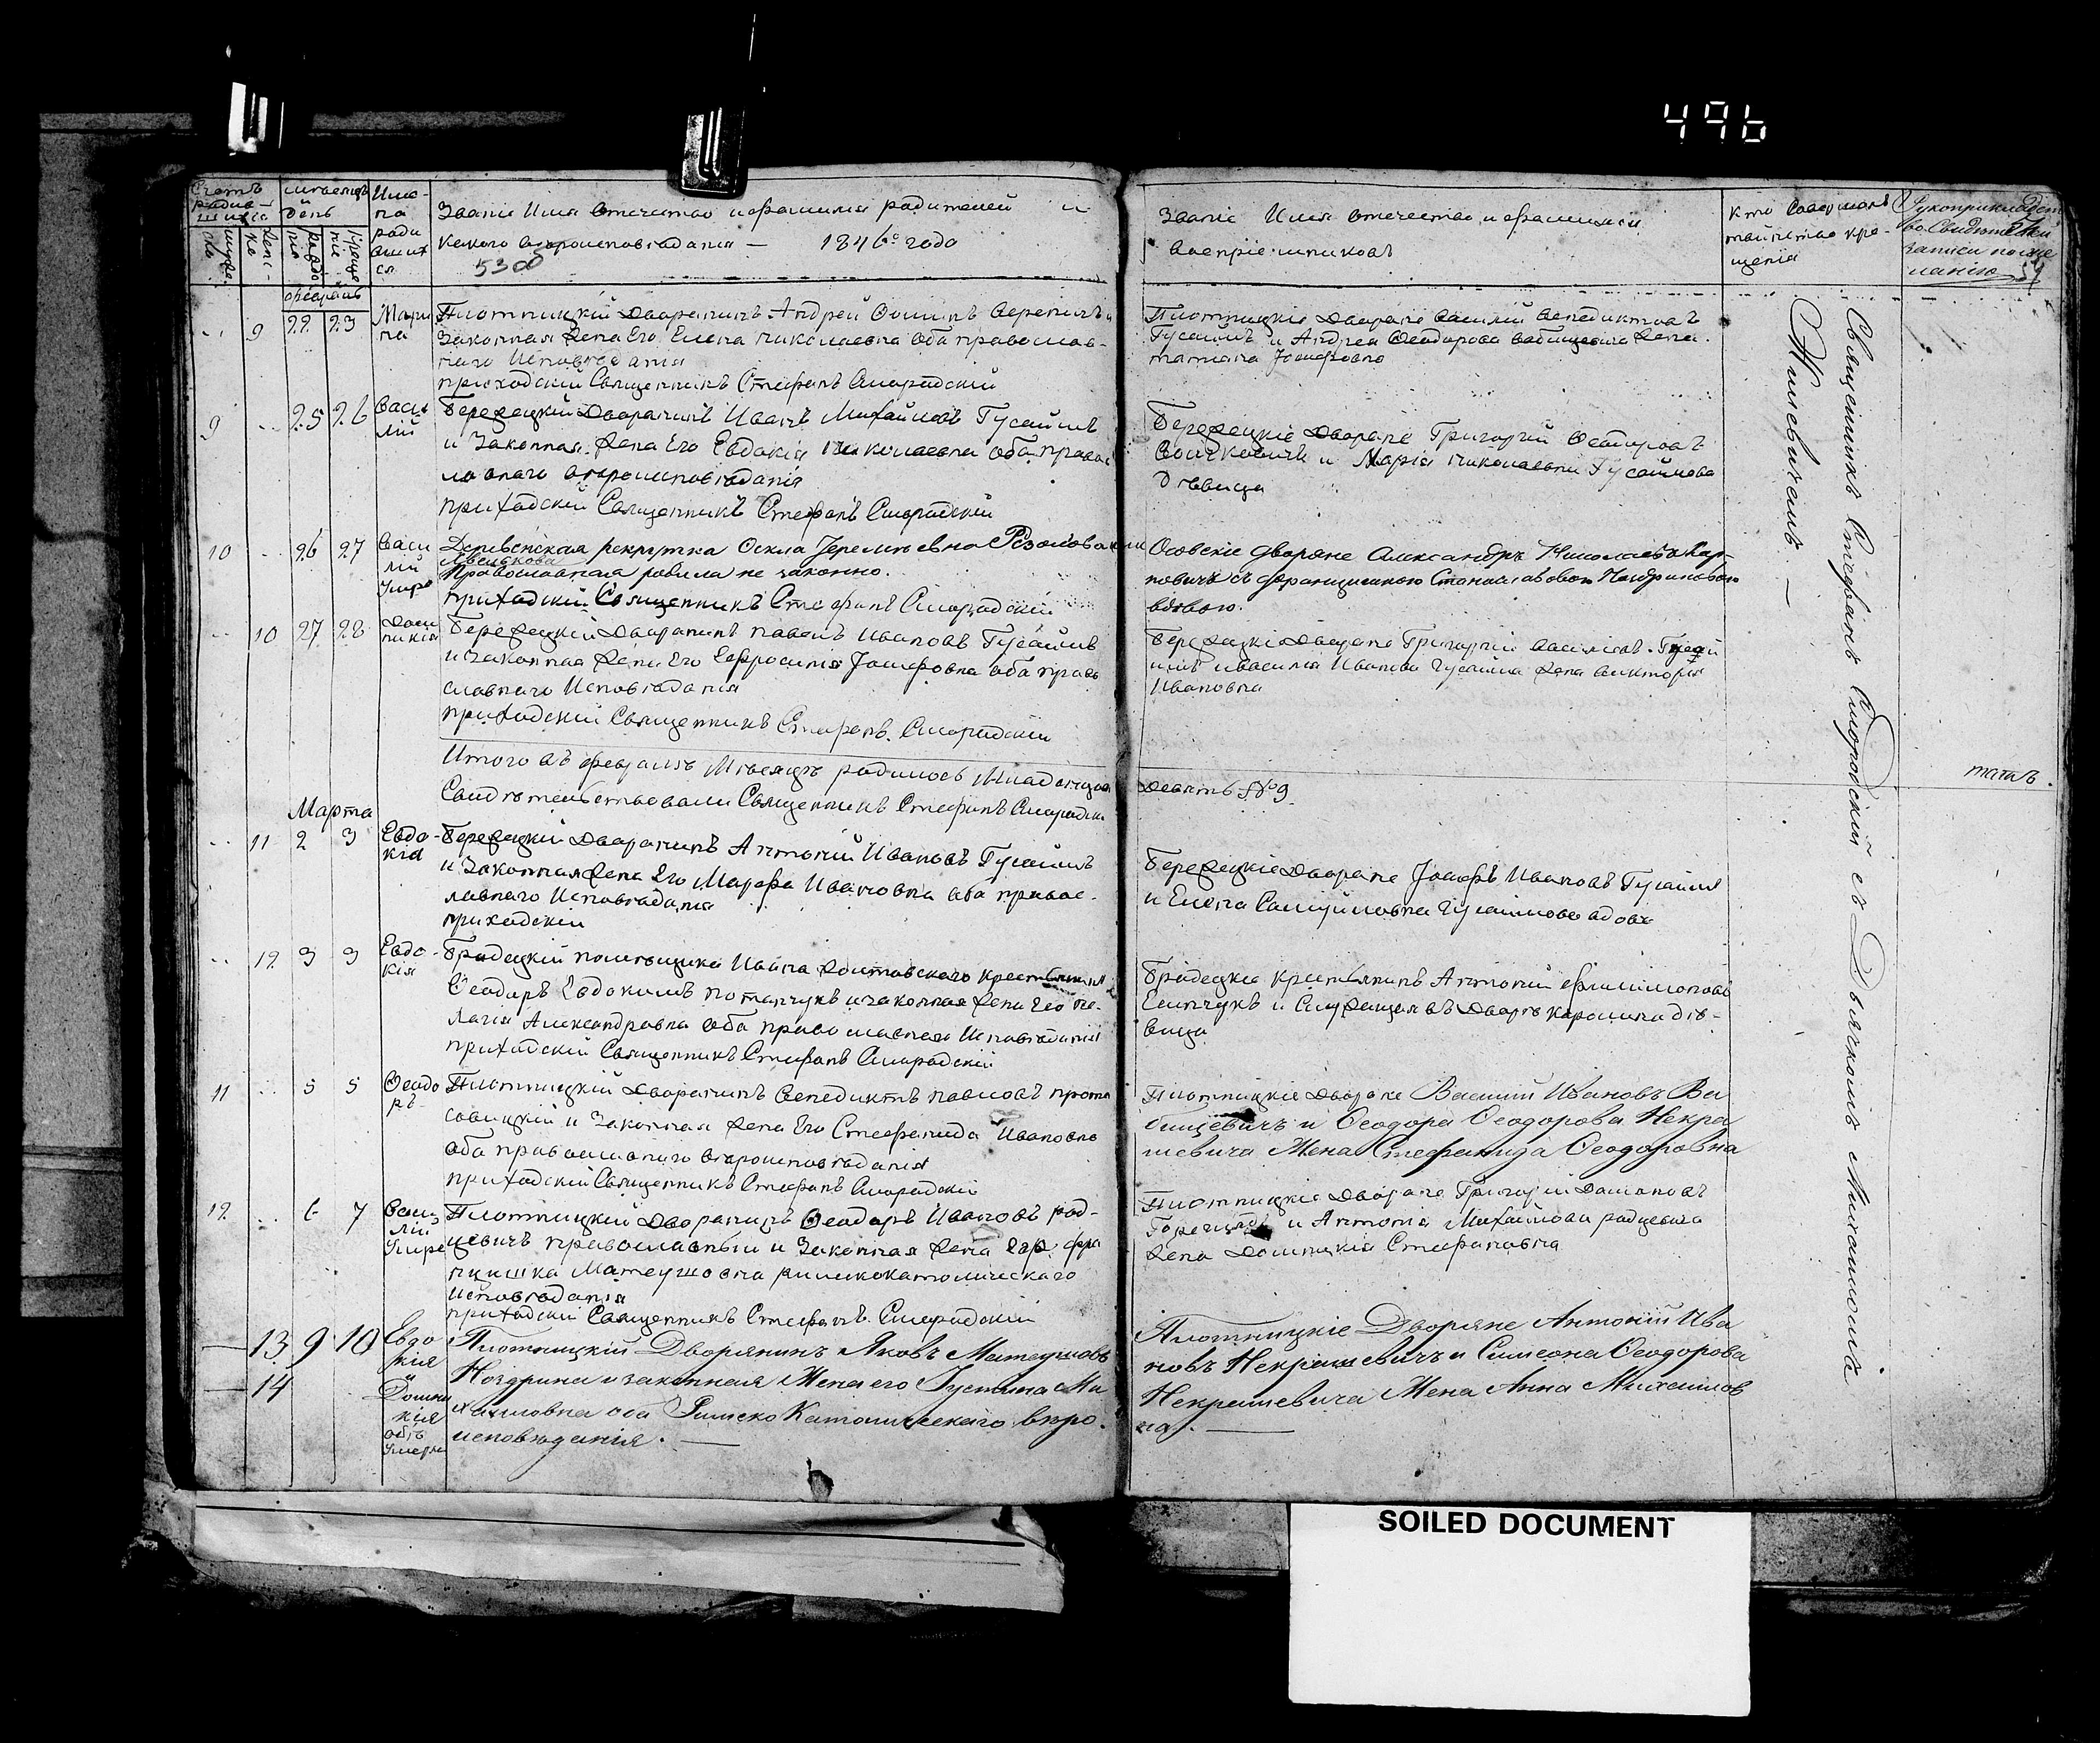 496
Счетъ родив-шихся
мѣсяцъ и день
Име-на роди вших ся
Званіе Имя Отечество и фамилія родителей и
какого вѣроисповѣданія — 1846го года
5300
Званіе Имя Отечество и фамилія
воспріемниковъ
Кто Совершалъ
таинство кре-
щенія
Рукоприкладст
во Свидѣтелей
записи по же
ланію 59
февраль
9 22 23 Мари на
Плотницкій Дворянинъ Андрей Ѳоминъ Вереничъ и
Законная Жена Его Елена Николаевна оба православ-
наго Исповѣданія
приходскій Священникъ Стефанъ Смородскій
Плотницкіе Дворяне Василій Венедиктовъ
Гусаимъ и Андрея Ѳеодорова Бабицевича Жена
татіана Іосифовна
9 25 26 Васи лій
Бережецкій Дворянинъ Иванъ Михайловъ Гусаимъ
и Законная Жена Его Евдокія Николаевна оба право
славнаго вѣроисповѣданія
приходскій Священникъ Стефанъ Смородскій
Бережецкіе Дворяне Григорій Ѳеодоровъ
и Марія Николаевна Гусаимова
Дѣвица
10 26 27 Васи лій Умре
Деревенская рекрутка Ѳекла Іеремѣевна
Православная родила не законно.
приходскій Священникъ Стефанъ Смородскій
Осовскіе дворяне Александръ Николаевъ Кар-
повичъ съ францишкою Станиславовою
вдовою.
10 27 28 Доми никія
Бережецкій Дворянинъ Павелъ Ивановъ Гусаимъ
и законная Жена Его Ефросинія Іосифовна оба право
славнаго Исповѣданія
приходскій Священникъ Стефанъ Смородскій
Бережецкіе Дворяне Григорій Василіевъ Гусаи
имъ и Василія Иванова Гусаима Жена Викторія
Ивановна
Итого въ февралѣ Мѣсяцѣ родилось Младенцовъ
девять №9.
Свидѣтельствовали Священникъ Стефанъ Смородскі
Марта
11 2 3 Евдо-кія
Бережецкій Дворянинъ Антоній Ивановъ Гусаимъ
и Законная Жена Его Марфа Ивановна оба правос-
лавнаго Исповѣданія
приходскій
Бережецкіе Дворяне Іосифъ Ивановъ Гусаимъ
и Елена Самуиловна Гусаимова вдова
12 3 3 Евдо-кія
помѣщика Ивана крестьянинъ
Ѳеодоръ Евдокимъ Потапчукъ и законная Жена Его пе-
лагія Александровна оба православнаго Исповѣданія
приходскій Священникъ Стефанъ Смородскій
крестьянинъ Антоній Филимоновъ
и Каролина дѣ-
вица
11 5 5 Ѳеодо ръ
Плотницкій Дворянинъ Венедиктъ Павловъ Прота
совицкій и Законная Жена Его Стефанида Ивановна
оба православнаго вѣроисповѣданія
приходскій Священникъ Стефанъ Смородскій
Плотницкіе Дворяне Василій Ивановъ Ба
бицевичъ и Ѳеодора Ѳеодорова Некра
шевича Жена Стефанида Ѳеодоровна
12 6 7 Васи лій Умре
Плотницкій Дворянинъ Ѳеодоръ Ивановъ Род-
цевичъ православный и Законная Жена Его фра
нцишка Матеушовна римскокатолическаго
исповѣданія
приходскій Священникъ Стефанъ Смородскій
Плотницкіе Дворяне Григорій Даміановъ
и Антонія Михайлова Родцевича
Жена Домникія Стефановна
13 9 10 Евдо кія
14 и Домни кія обѣ Умерли
Плотницкій Дворянинъ Яковъ Матеушовъ
Ноздрина и законная Жена его Іустина Ми
хаиловна оба Римско Католическаго вѣро
исповѣданія. —
Плотницкіе Дворяне Антоній Ива
новъ Некрашевичъ и Симеона Ѳеодорова
Некрашевича Жена Анна Михаилов
на. —
Священникъ Стефанъ Смородскій съ Дьячкомъ Михаиломъ
Жилевичемъ. —
SOILED DOCUMENT